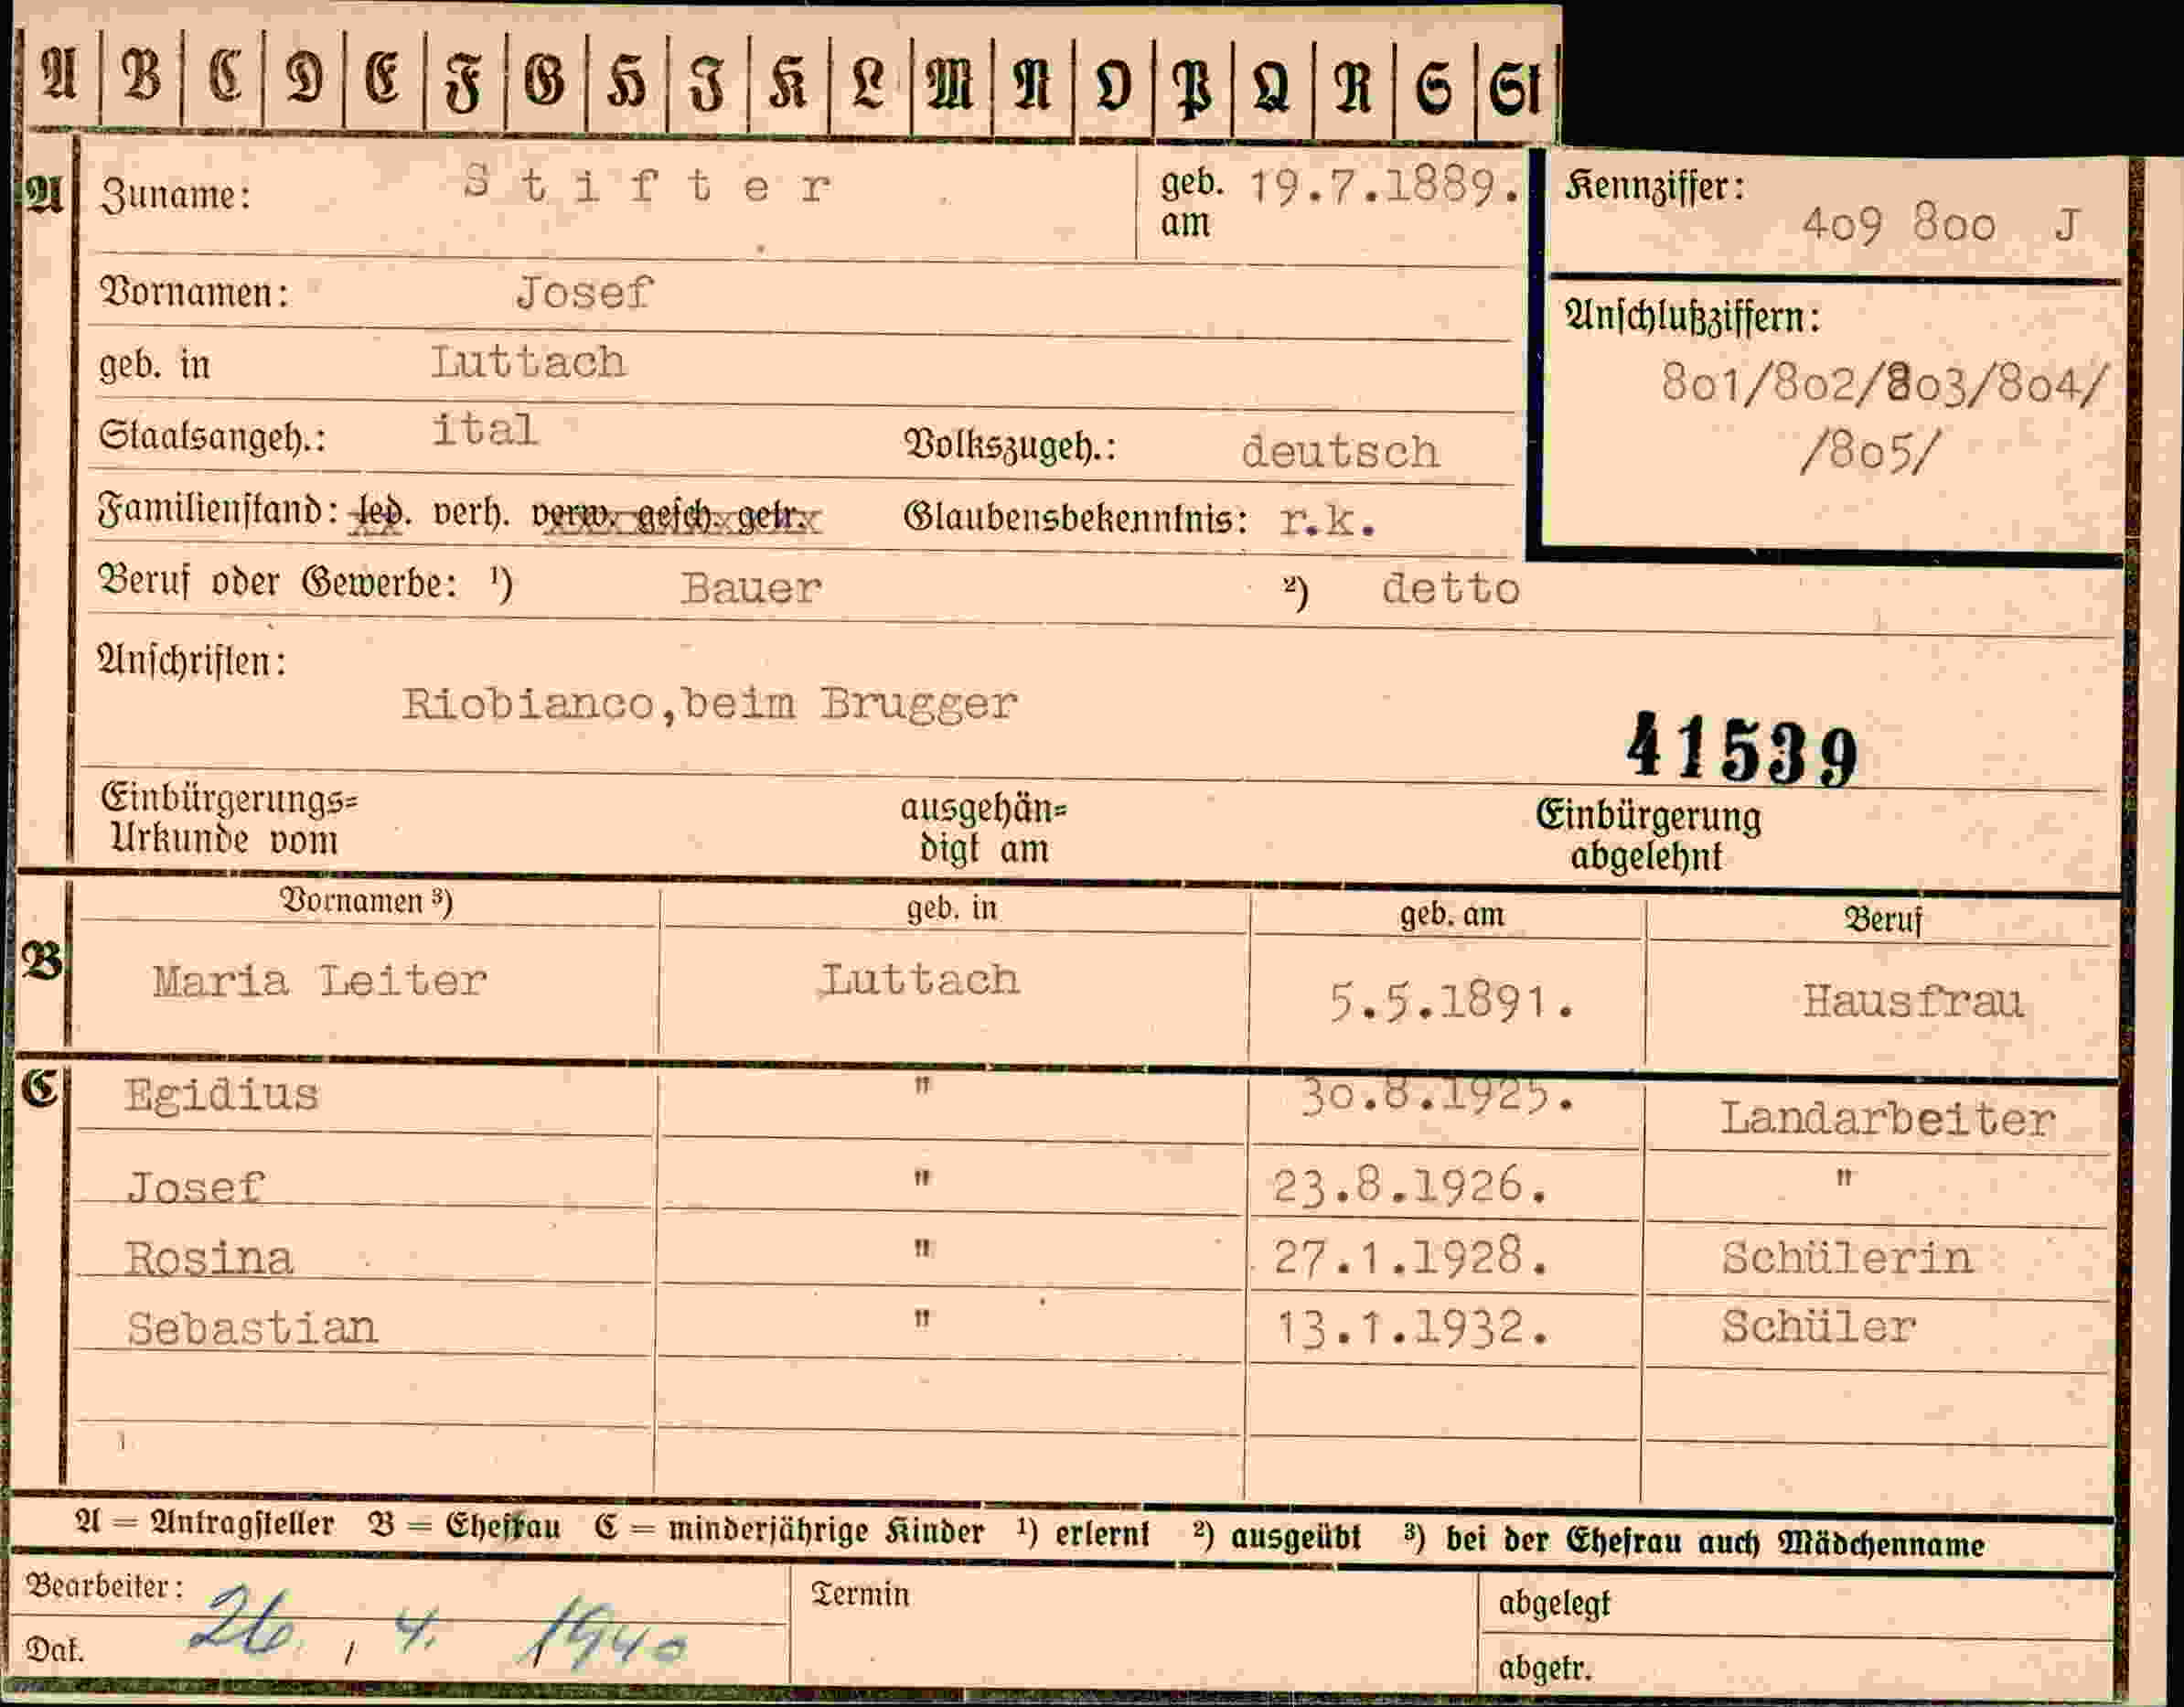 A B C D E F G H I K L M N O P Q R S St
A Zuname: Stifter geb. am 19.7.1889. Kennziffer: 409 800 J
Vornamen: Josef Anschlußziffern:
geb. in Luttach 801/802/803/804/
Staatsangeh.: ital Volkszugeh.: deutsch /805/
Familienstand: led. verh. verw. gesch. getr. Glaubensbekenntnis: r.k.
Beruf oder Gewerbe: ¹) Bauer ²) detto
Anschriften:
Riobianco,beim Brugger
41539
Einbürgerungs= ausgehän= Einbürgerung
Urkunde vom digt am abgelehnt
Vornamen ³) geb. in geb. am Beruf
B Maria Leiter Luttach 5.5.1891. Hausfrau
C Egidius " 30.8.1925. Landarbeiter
Josef " 23.8.1926. "
Rosina " 27.1.1928. Schülerin
Sebastian " 13.1.1932. Schüler
A = Antragsteller B = Ehefrau C = minderjährige Kinder ¹) erlernt ²) ausgeübt ³) bei der Ehefrau auch Mädchenname
Bearbeiter: Termin abgelegt
Dat. 26. / 4. 1940 abgetr.